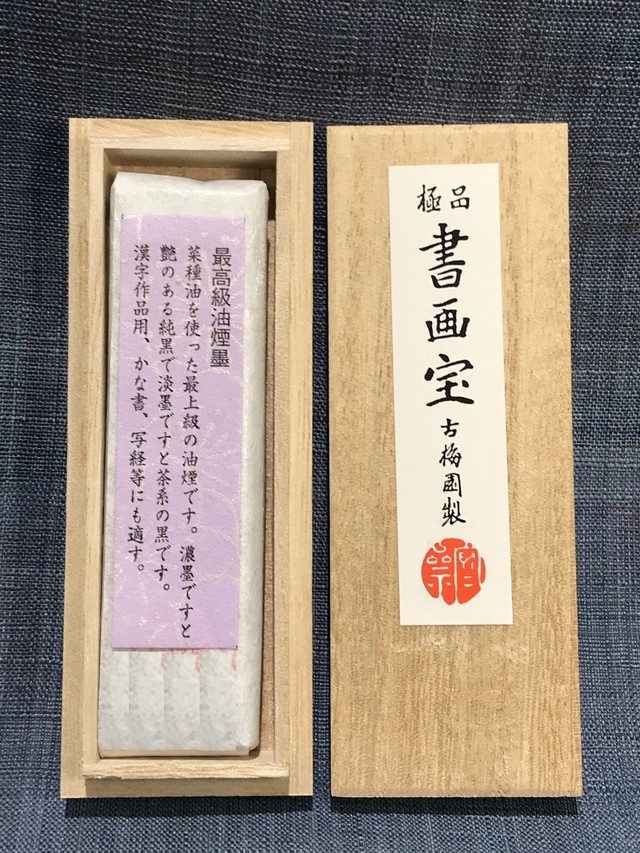 極品
書画宝
古梅園製
最高級油煙墨
菜種油を使った最上級の油煙です。濃墨ですと
艶のある純黒で淡墨ですと茶系の黒です。
漢字作品用、かな書、写経等にも適す。